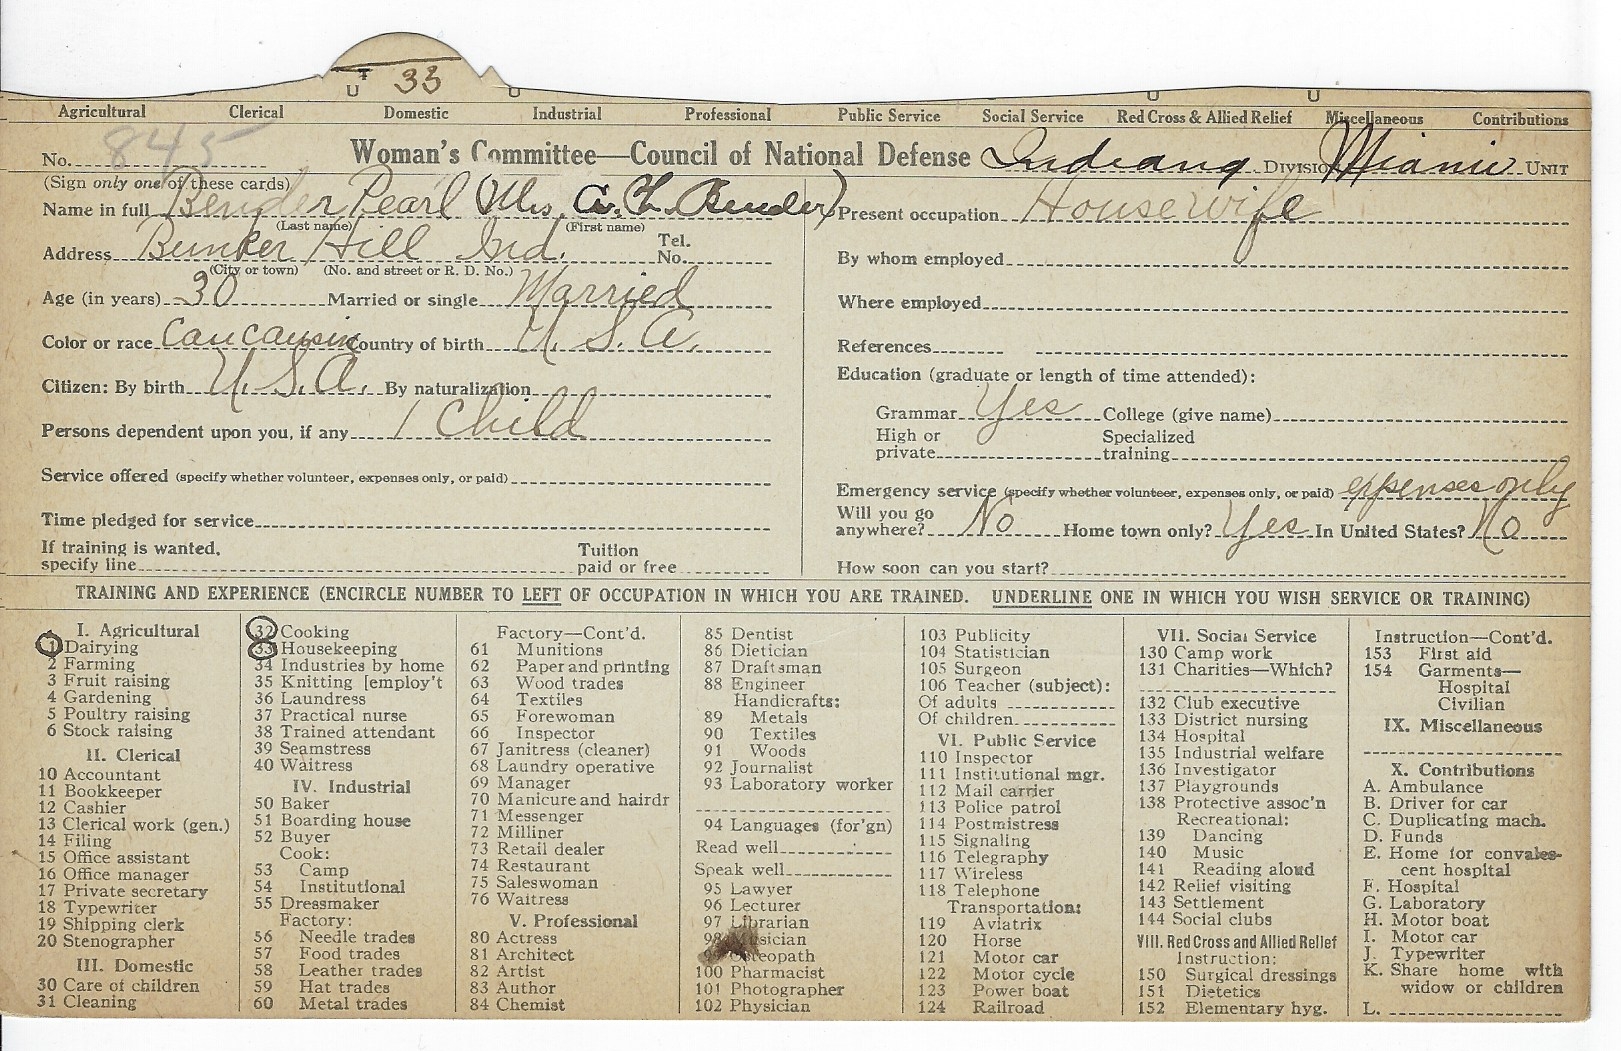 33
U U U U
Agricultural Clerical Domestic Industrial Professional Public Service Social Service Red Cross & Allied Relief Miscellaneous Contributions
No. 845 Woman's Committee—Council of National Defense Indiana Division Miami Unit
(Sign only one of these cards)
Name in full Bender Pearl (Mrs. Bender)
(Last name) (First name)
Address Bunker Hill Ind. Tel. No.
(City or town) (No. and street or R. D. No.)
Age (in years) 30 Married or single Married
Color or race Caucausin Country of birth U. S. A.
Citizen: By birth U.S.A. By naturalization
Persons dependent upon you, if any 1 Child
Service offered (specify whether volunteer, expenses only, or paid)
Time pledged for service
If training is wanted, specify line Tuition paid or free
Present occupation Housewife
By whom employed
Where employed
References
Education (graduate or length of time attended):
Grammar Yes College (give name)
High or private Specialized training
Emergency service (specify whether volunteer, expenses only, or paid) expenses only
Will you go anywhere? No Home town only? Yes In United States? No
How soon can you start?
TRAINING AND EXPERIENCE (ENCIRCLE NUMBER TO LEFT OF OCCUPATION IN WHICH YOU ARE TRAINED. UNDERLINE ONE IN WHICH YOU WISH SERVICE OR TRAINING)
I. Agricultural
1 Dairying
2 Farming
3 Fruit raising
4 Gardening
5 Poultry raising
6 Stock raising
II. Clerical
10 Accountant
11 Bookkeeper
12 Cashier
13 Clerical work (gen.)
14 Filing
15 Office assistant
16 Office manager
17 Private secretary
18 Typewriter
19 Shipping clerk
20 Stenographer
III. Domestic
30 Care of children
31 Cleaning
32 Cooking
33 Housekeeping
34 Industries by home
35 Knitting [employ't
36 Laundress
37 Practical nurse
38 Trained attendant
39 Seamstress
40 Waitress
IV. Industrial
50 Baker
51 Boarding house
52 Buyer
Cook:
53 Camp
54 Institutional
55 Dressmaker
Factory:
56 Needle trades
57 Food trades
58 Leather trades
59 Hat trades
60 Metal trades
Factory—Cont'd.
61 Munitions
62 Paper and printing
63 Wood trades
64 Textiles
65 Forewoman
66 Inspector
67 Janitress (cleaner)
68 Laundry operative
69 Manager
70 Manicure and hairdr
71 Messenger
72 Milliner
73 Retail dealer
74 Restaurant
75 Saleswoman
76 Waitress
V. Professional
80 Actress
81 Architect
82 Artist
83 Author
84 Chemist
85 Dentist
86 Dietician
87 Draftsman
88 Engineer
Handicrafts:
89 Metals
90 Textiles
91 Woods
92 Journalist
93 Laboratory worker
94 Languages (for'gn)
Read well
Speak well
95 Lawyer
96 Lecturer
97 Librarian
98 Musician
99 Osteopath
100 Pharmacist
101 Photographer
102 Physician
103 Publicity
104 Statistician
105 Surgeon
106 Teacher (subject):
Of adults
Of children
VI. Public Service
110 Inspector
111 Institutional mgr.
112 Mail carrier
113 Police patrol
114 Postmistress
115 Signaling
116 Telegraphy
117 Wireless
118 Telephone
Transportation:
119 Aviatrix
120 Horse
121 Motor car
122 Motor cycle
123 Power boat
124 Railroad
VII. Social Service
130 Camp work
131 Charities—Which?
132 Club executive
133 District nursing
134 Hospital
135 Industrial welfare
136 Investigator
137 Playgrounds
138 Protective assoc'n
Recreational:
139 Dancing
140 Music
141 Reading aloud
142 Relief visiting
143 Settlement
144 Social clubs
VIII. Red Cross and Allied Relief
Instruction:
150 Surgical dressings
151 Dietetics
152 Elementary hyg.
Instruction—Cont'd.
153 First aid
154 Garments—
Hospital
Civilian
IX. Miscellaneous
X. Contributions
A. Ambulance
B. Driver for car
C. Duplicating mach.
D. Funds
E. Home for convales-
cent hospital
F. Hospital
G. Laboratory
H. Motor boat
I. Motor car
J. Typewriter
K. Share home with
widow or children
L.